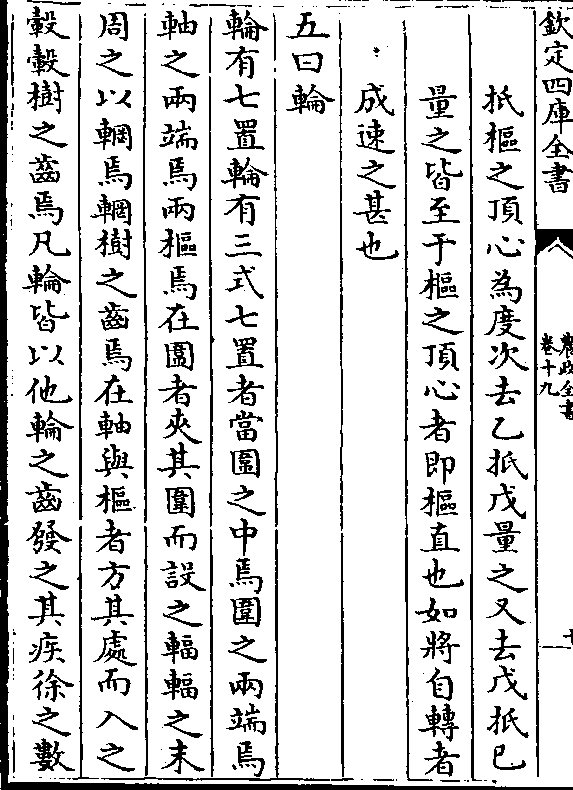 欽定四庫全書
農政全書
卷十九
抵樞之頂心為度次去乙抵戊量之又去戊抵巳
量之皆至于樞之頂心者即樞直也如將自轉者
成速之甚也
五曰輪
輪有七置輪有三式七置者當圍之中焉圍之兩端焉
軸之兩端焉兩樞焉在圍者夾其圍而設之輻輻之末
周之以輞焉輞樹之齒焉在軸與樞者方其處而入之
轂轂樹之齒焉凡輪皆以他輪之齒發之其疾徐之數